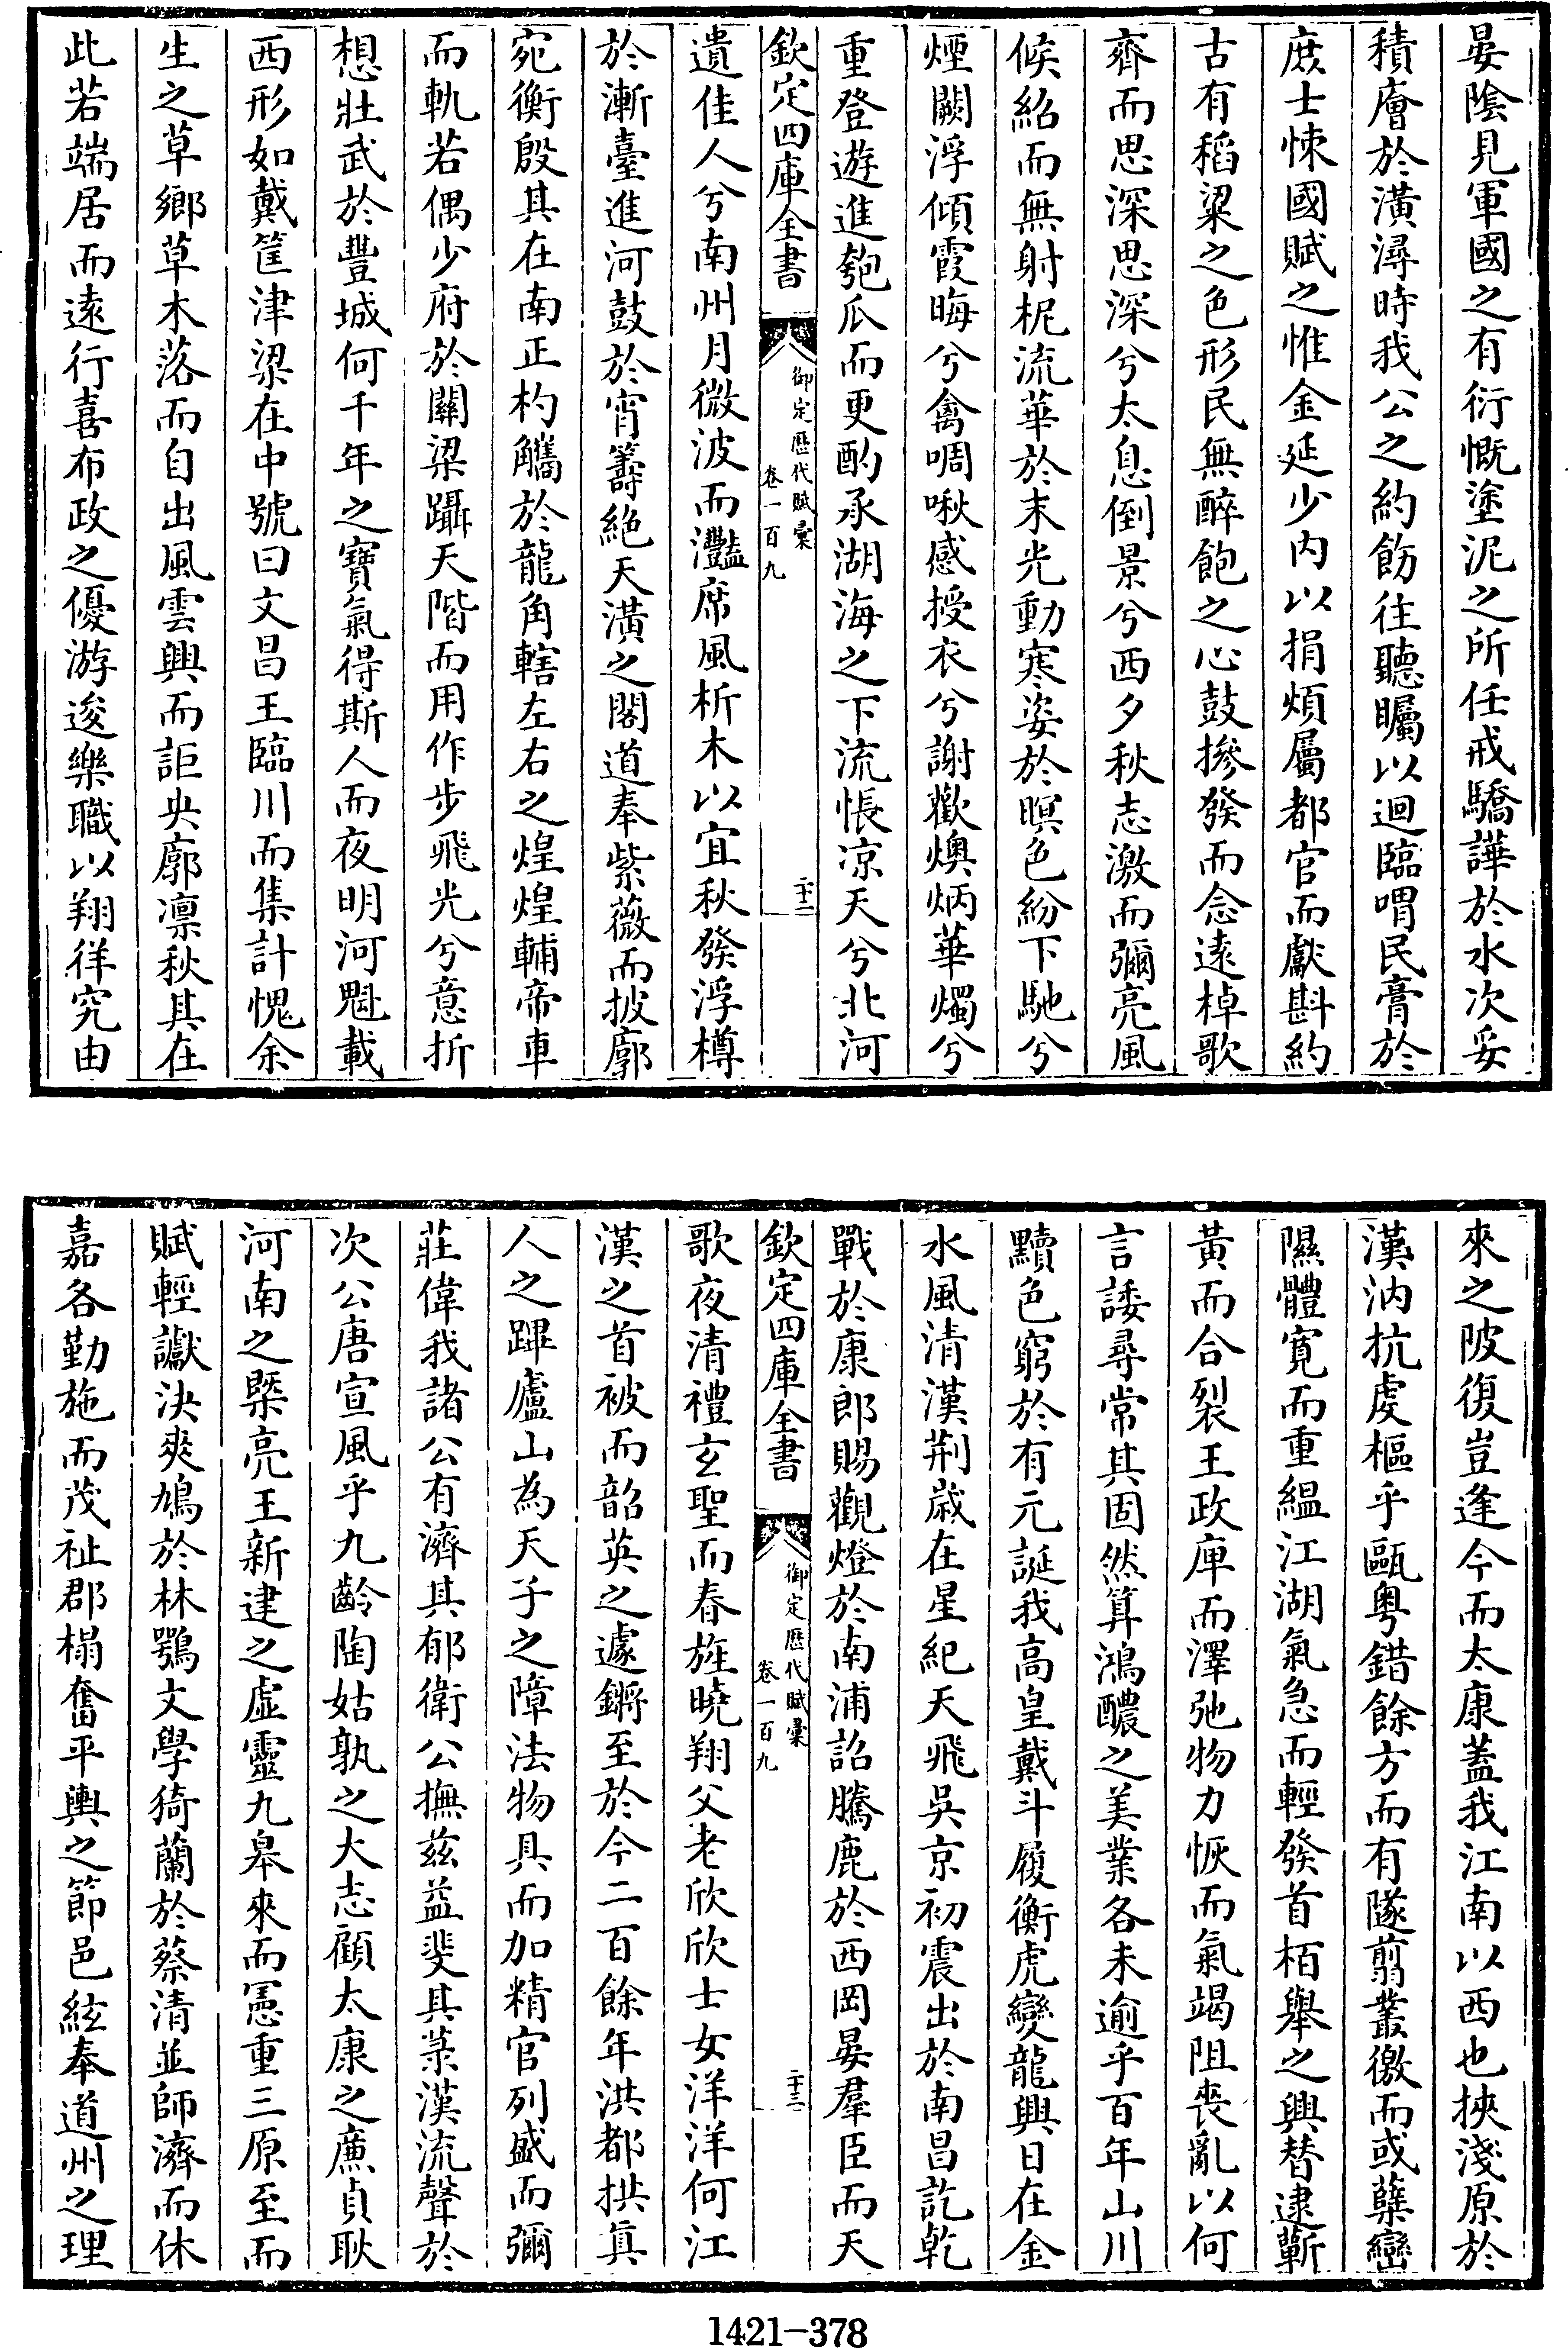 晏陰見軍國之有衍慨塗泥之所任戒驕譁於水次妥
積廥於潢潯時我公之約飭往聽矚以迴臨喟民膏於
庶士悚國賦之惟金延少內以捐煩屬都官而獻斟約
古有稻粱之色形民無醉飽之心鼓摻發而念遠棹歌
齊而思深思深兮太息倒景兮西夕秋志激而彌亮風
候紹而無射柅流華於末光動寒姿於暝色紛下馳兮
煙闕浮傾霞晦兮禽啁啾感授衣兮謝歡燠炳華燭兮
重登遊進匏瓜而更酌承湖海之下流悵凉天兮北河
欽定四庫全書
御定歷代賦彙
卷一百九
二十二
遺佳人兮南州月微波而灩席風析木以宜秋發浮樽
於漸臺進河鼓於宵籌絶天潢之閣道奉紫薇而披廓
宛衡殷其在南正杓觿於龍角轄左右之煌煌輔帝車
而軌若偶少府於關梁躡天階而用作步飛光兮意折
想壯武於豐城何千年之寶氣得斯人而夜明河魁載
西形如戴筐津梁在中號曰文昌王臨川而集計愧余
生之草鄉草木落而自出風雲興而詎央廓凛秋其在
此若端居而遠行喜布政之優游逡樂職以翔徉究由
來之陂復豈逢今而太康蓋我江南以西也挾淺原於
漢汭抗虔樞乎甌粵錯餘方而有隧翦叢徼而或蘖巒
隰體寛而重緼江湖氣急而輕發首栢舉之興替逮蘄
黃而合裂王政庳而澤弛物力恢而氣竭阻喪亂以何
言諉尋常其固然算鴻醲之美業各未逾乎百年山川
黷色窮於有元誕我高皇戴斗履衡虎變龍興日在金
水風清漢荆歲在星紀天飛吳京初震出於南昌訖乾
戰於康郎賜觀燈於南浦詔騰鹿於西岡晏羣臣而天
欽定四庫全書
御定歷代賦彙
卷一百九
二十三
歌夜清禮玄聖而春旌曉翔父老欣欣士女洋洋何江
漢之首被而韶英之遽鏘至於今二百餘年洪都拱真
人之蹕廬山為天子之障法物具而加精官列盛而彌
莊偉我諸公有濟其郁衛公撫茲益斐其菉漢流聲於
次公唐宣風乎九齡陶姑孰之大志顧太康之亷貞耿
河南之槩亮王新建之虛靈九皋來而憲重三原至而
賦輕讞決爽鳩於林鶚文學猗蘭於蔡清並師濟而休
嘉各勤施而茂祉郡榻奮平輿之節邑絃奉道州之理
1421-378